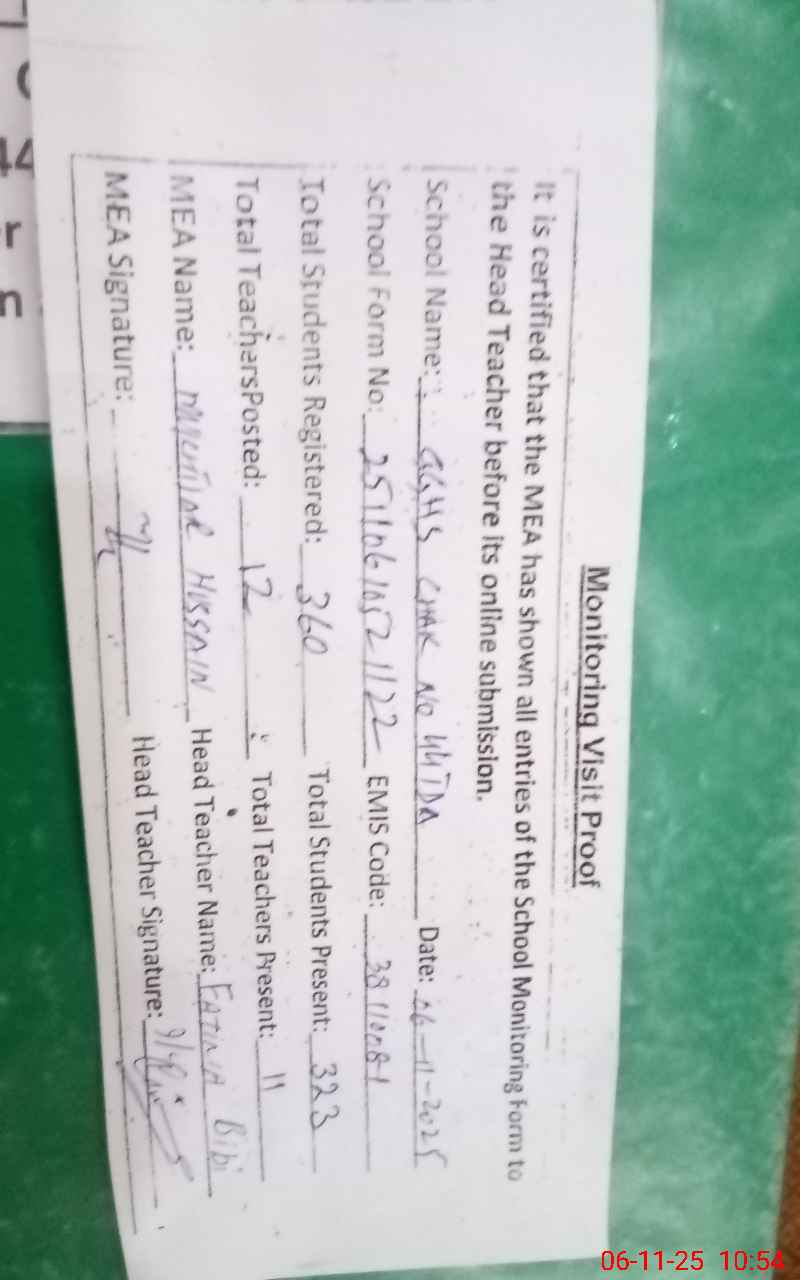 Monitoring Visit Proof
It is certified that the MEA has shown all entries of the School Monitoring Form to
the Head Teacher before its online submission.
School Name: GGHS CHAK NO 44TDA Date: 06-11-2025
School Form No: EMIS Code:
Total Students Registered: 360 Total Students Present: 323
Total TeachersPosted: 12 Total Teachers Present: 11
MEA Name: HUSSAIN Head Teacher Name: FATIMA Bibi
MEA Signature: Head Teacher Signature:
06-11-25 10:54